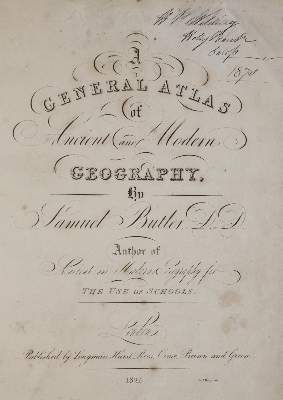 1870
A
GENERAL ATLAS
of
Ancient and Modern
GEOGRAPHY,
By
Samuel Butler, D.D.
Author of
Modern Geography for
THE USE OF SCHOOLS.
London
Published by Longman, Hurst, Rees, Orme, Brown and Green.